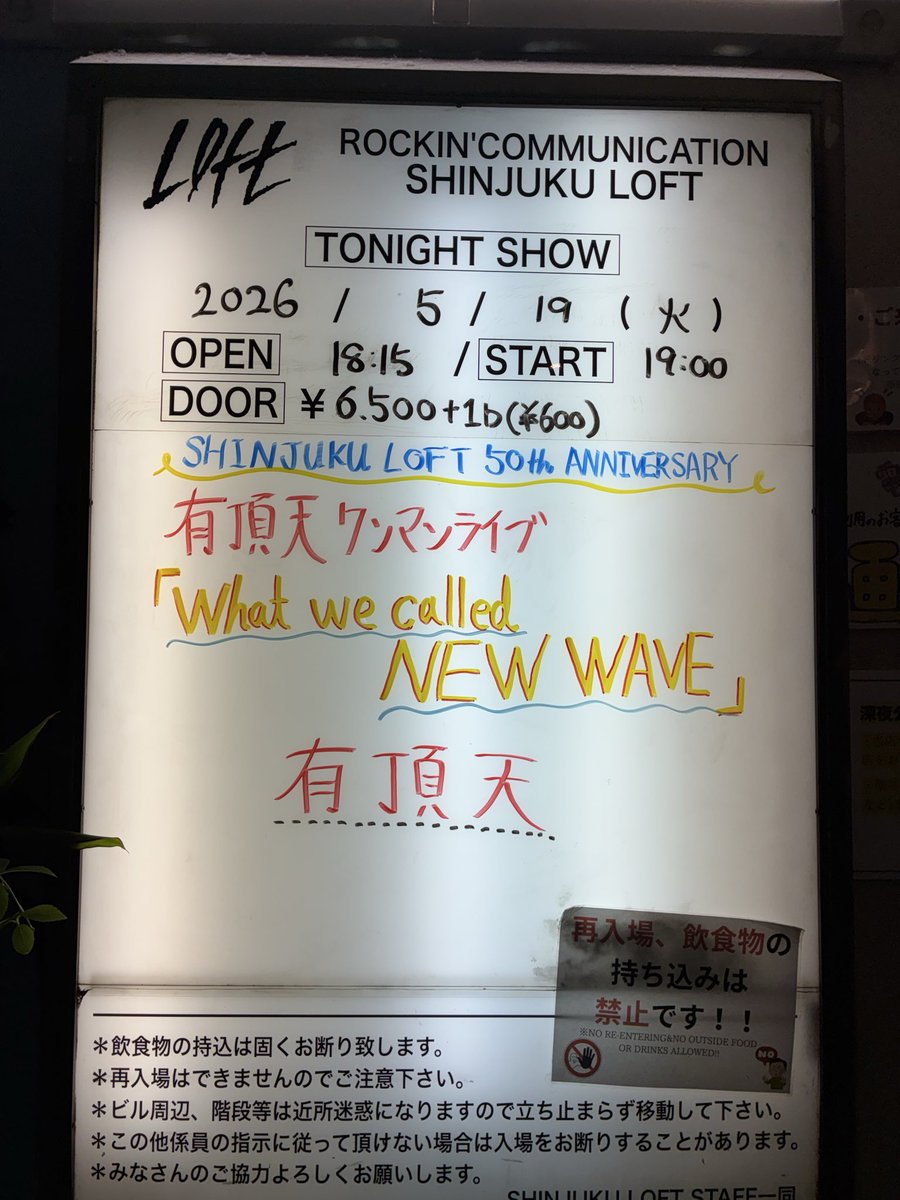 LOFT ROCKIN'COMMUNICATION
SHINJUKU LOFT
TONIGHT SHOW
2026 / 5 / 19 (火)
OPEN 18:15 / START 19:00
DOOR ¥6.500+1D(¥600)
SHINJUKU LOFT 50th ANNIVERSARY
有頂天ワンマンライブ
「What we called
NEW WAVE」
有頂天
再入場、飲食物の
持ち込みは
禁止です！！
※NO RE-ENTERING&NO OUTSIDE FOOD
OR DRINKS ALLOWED!!
NO
＊飲食物の持込は固くお断り致します。
＊再入場はできませんのでご注意下さい。
＊ビル周辺、階段等は近所迷惑になりますので立ち止まらず移動して下さい。
＊この他係員の指示に従って頂けない場合は入場をお断りすることがあります。
＊みなさんのご協力よろしくお願いします。
SHINJUKU LOFT STAFF一同